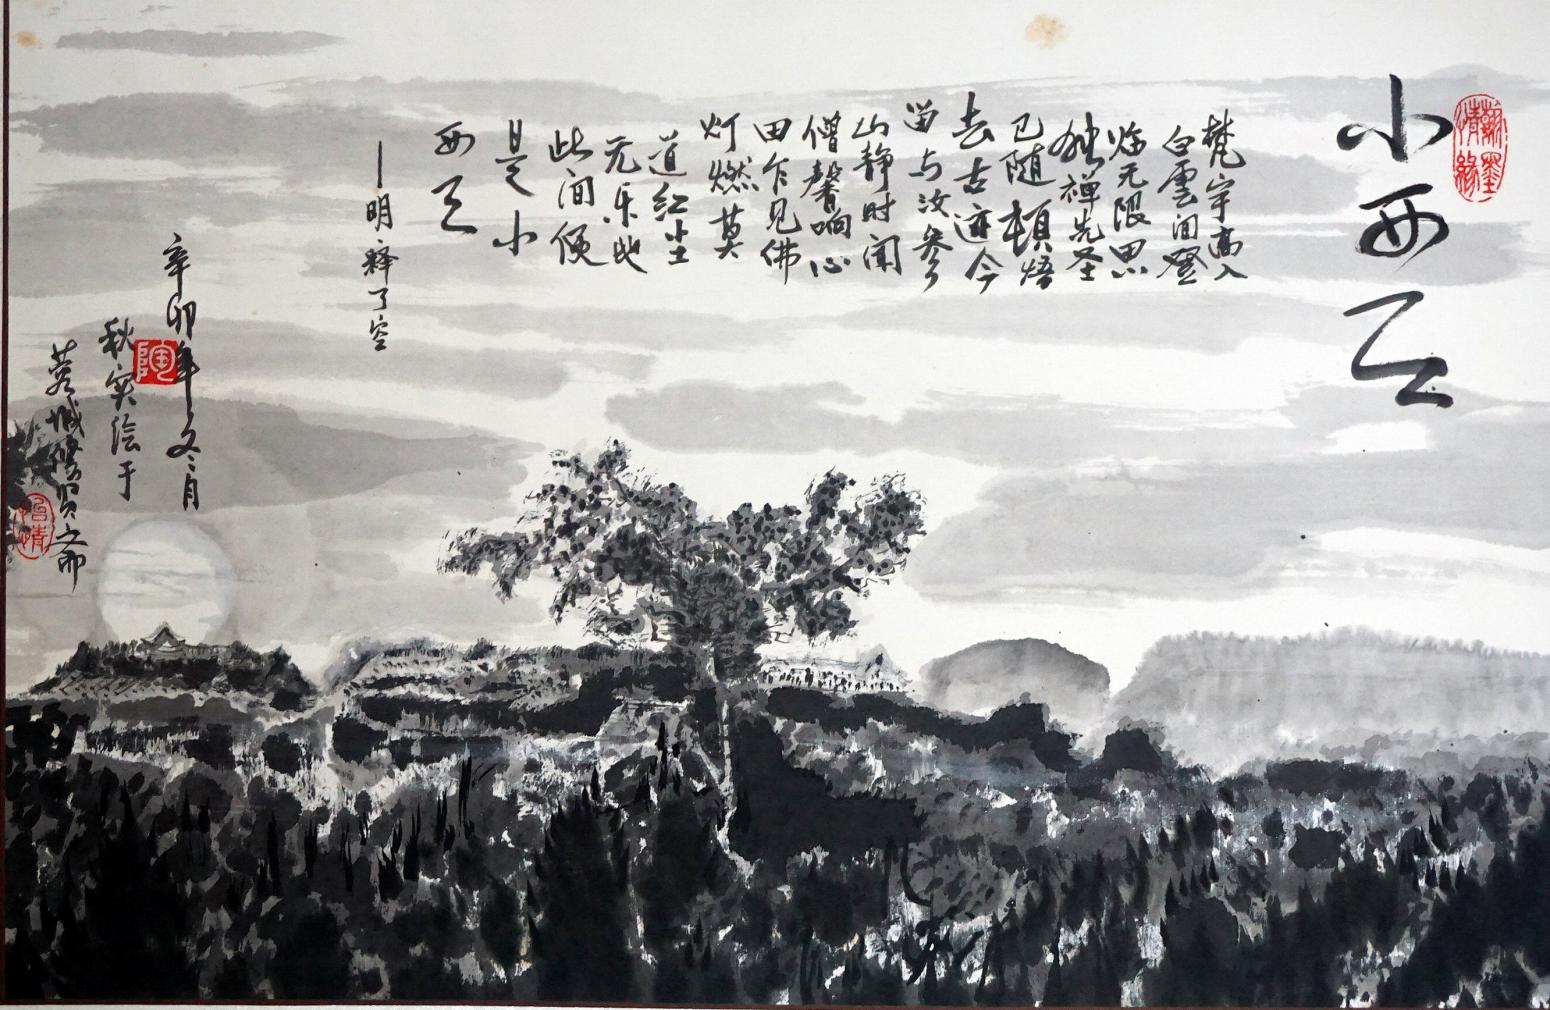 翰墨
情缘
小西天
梵宇高入
白雲间登
临无限思
禅先圣
已随顿悟
去古迹今
留与汝参
山静时闻
僧馨响心
田乍见佛
灯燃莫
道红尘
无乐地
此间便
是小
西天
—明 释了空
辛卯年冬月
秋实绘于
陶
蓉城贤之斋